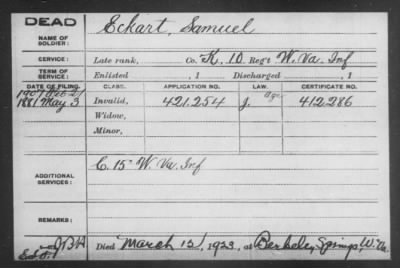 DEAD
NAME OF SOLDIER: Eckart, Samuel
SERVICE: Late rank, Co. K, 10 Reg't W. Va. Inf
TERM OF SERVICE: Enlisted , 1 Discharged , 1
DATE OF FILING. CLASS. APPLICATION NO. LAW. CERTIFICATE NO.
1907 Feb 21 Age
1881 May 3 Invalid, 421.254 J. 412286
Widow,
Minor,
ADDITIONAL SERVICES: C. 15" W. Va. Inf
REMARKS:
Died March 12, 1923, at Berkeley Springs, W. Va.